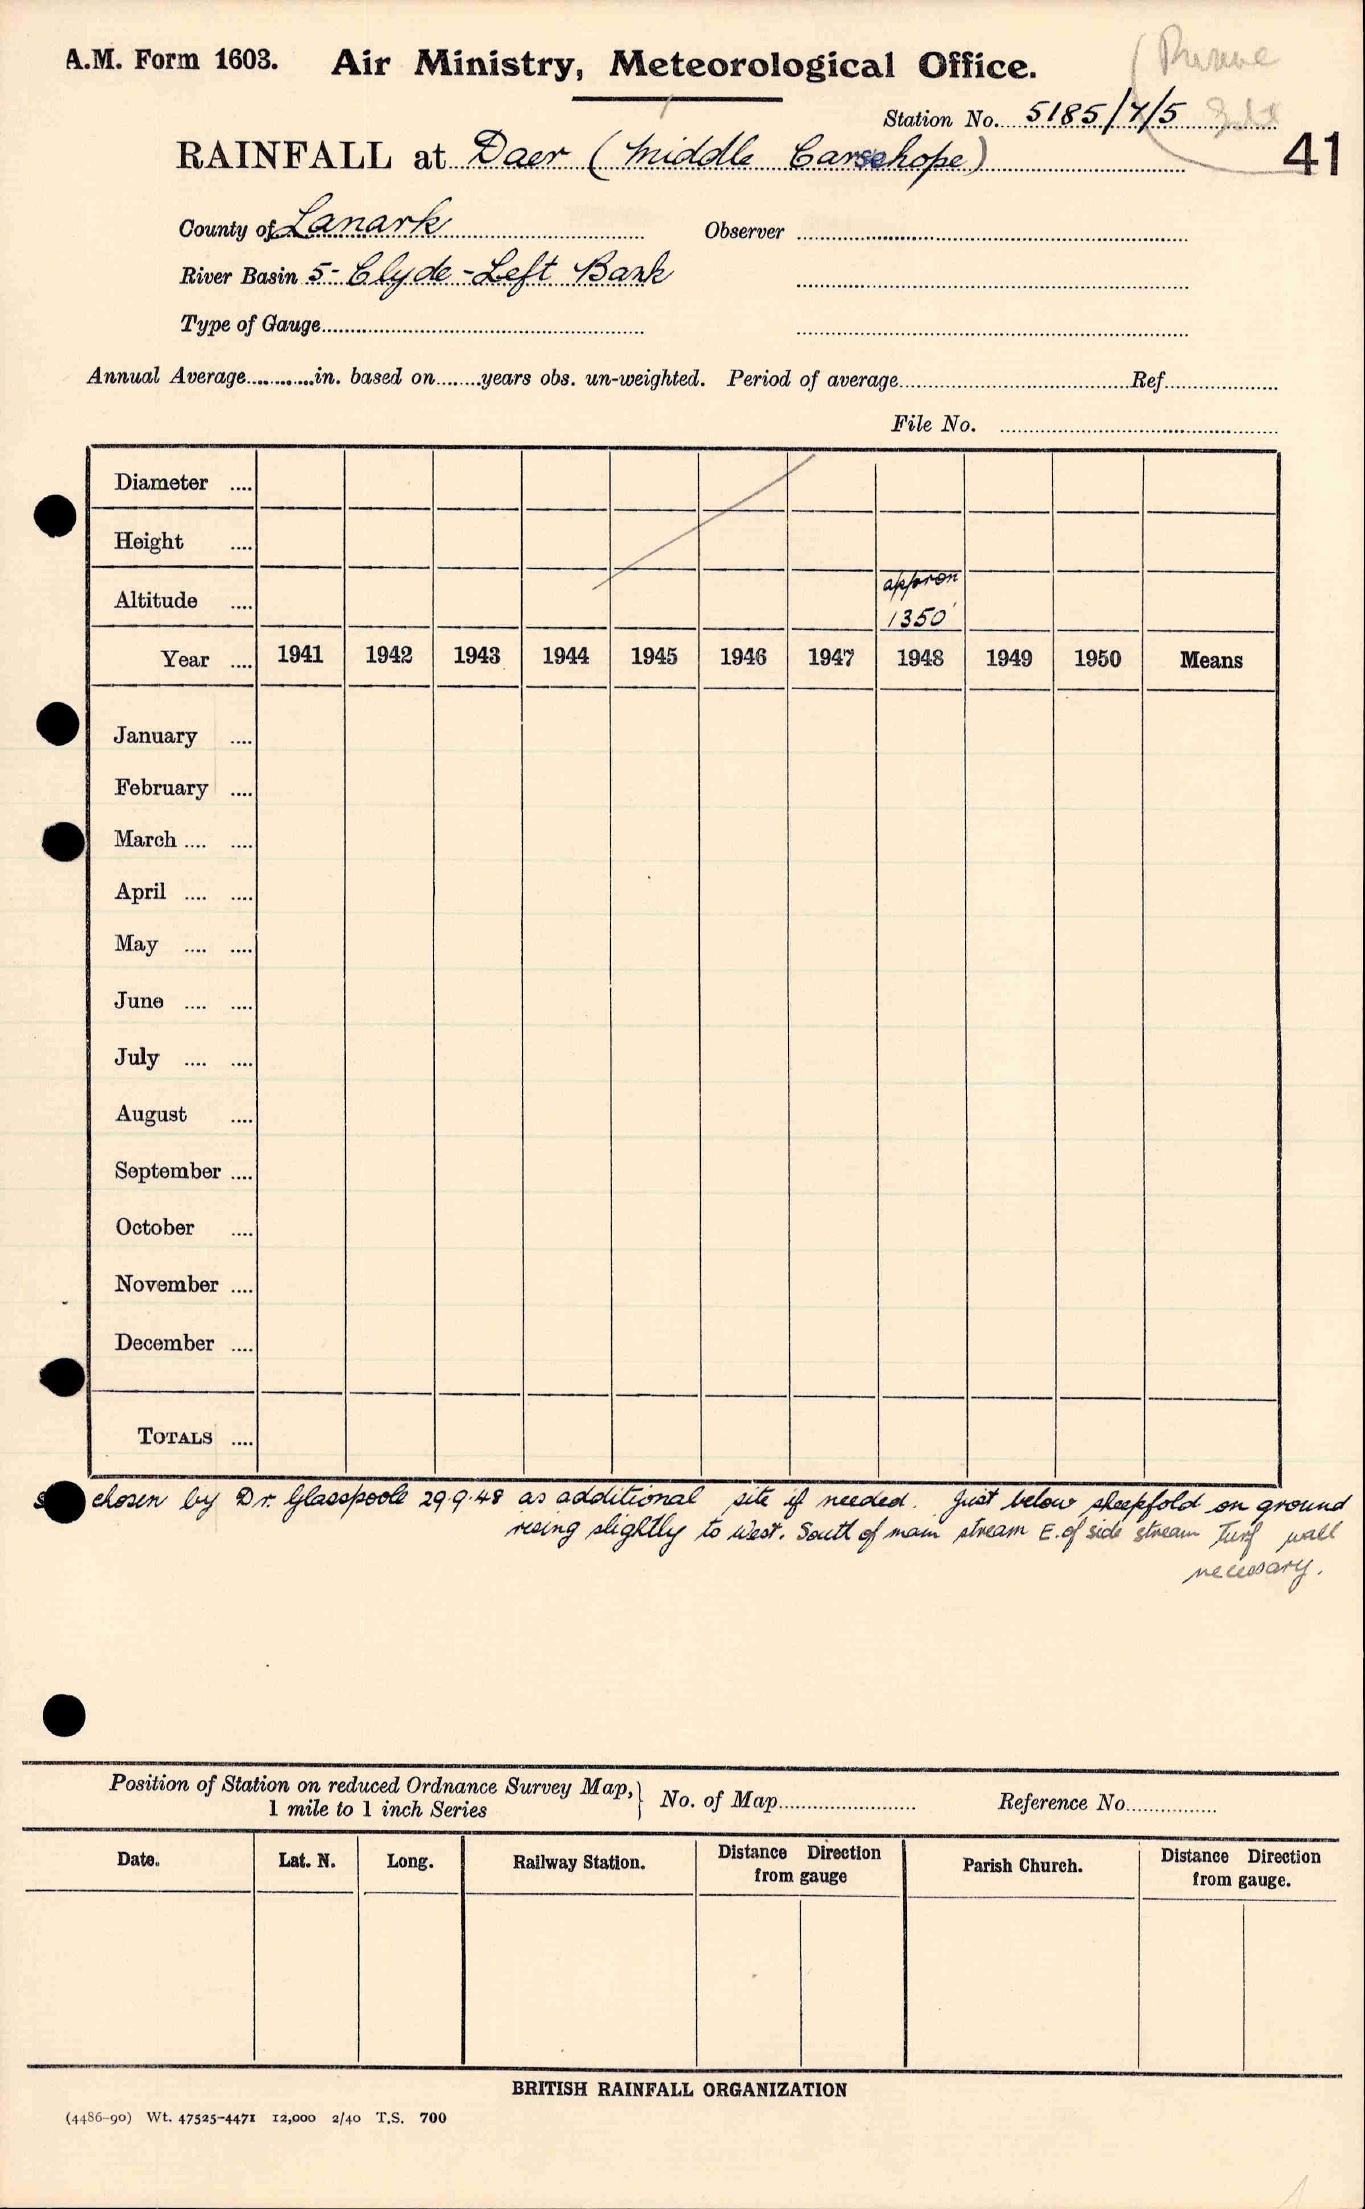 A.M. Form 1603. Air Ministry, Meteorological Office.
Station No. 5185/7/5
41
RAINFALL at Daer (Middle Carsehope)
County of Lanark Observer
River Basin 5 - Clyde - Left Bank
Type of Gauge
Annual Average............in. based on........years obs. un-weighted. Period of average Ref.
File No.
Diameter ....
Height ....
Altitude .... approx 1350'
Year .... 1941 1942 1943 1944 1945 1946 1947 1948 1949 1950 Means
January ....
February ....
March .... ....
April .... ....
May .... ....
June .... ....
July .... ....
August ....
September ....
October ....
November ....
December ....
TOTALS ....
chosen by Dr. Glasspoole 29.9.48 as additional site if needed. Just below sheepfold on ground
rising slightly to West. South of main stream E. of side stream Turf wall
necessary.
Position of Station on reduced Ordnance Survey Map, } No. of Map Reference No.
1 mile to 1 inch Series
Date. Lat. N. Long. Railway Station. Distance Direction from gauge Parish Church. Distance Direction from gauge.
BRITISH RAINFALL ORGANIZATION
(4486-90) Wt. 47525-4471 12,000 2/40 T.S. 700